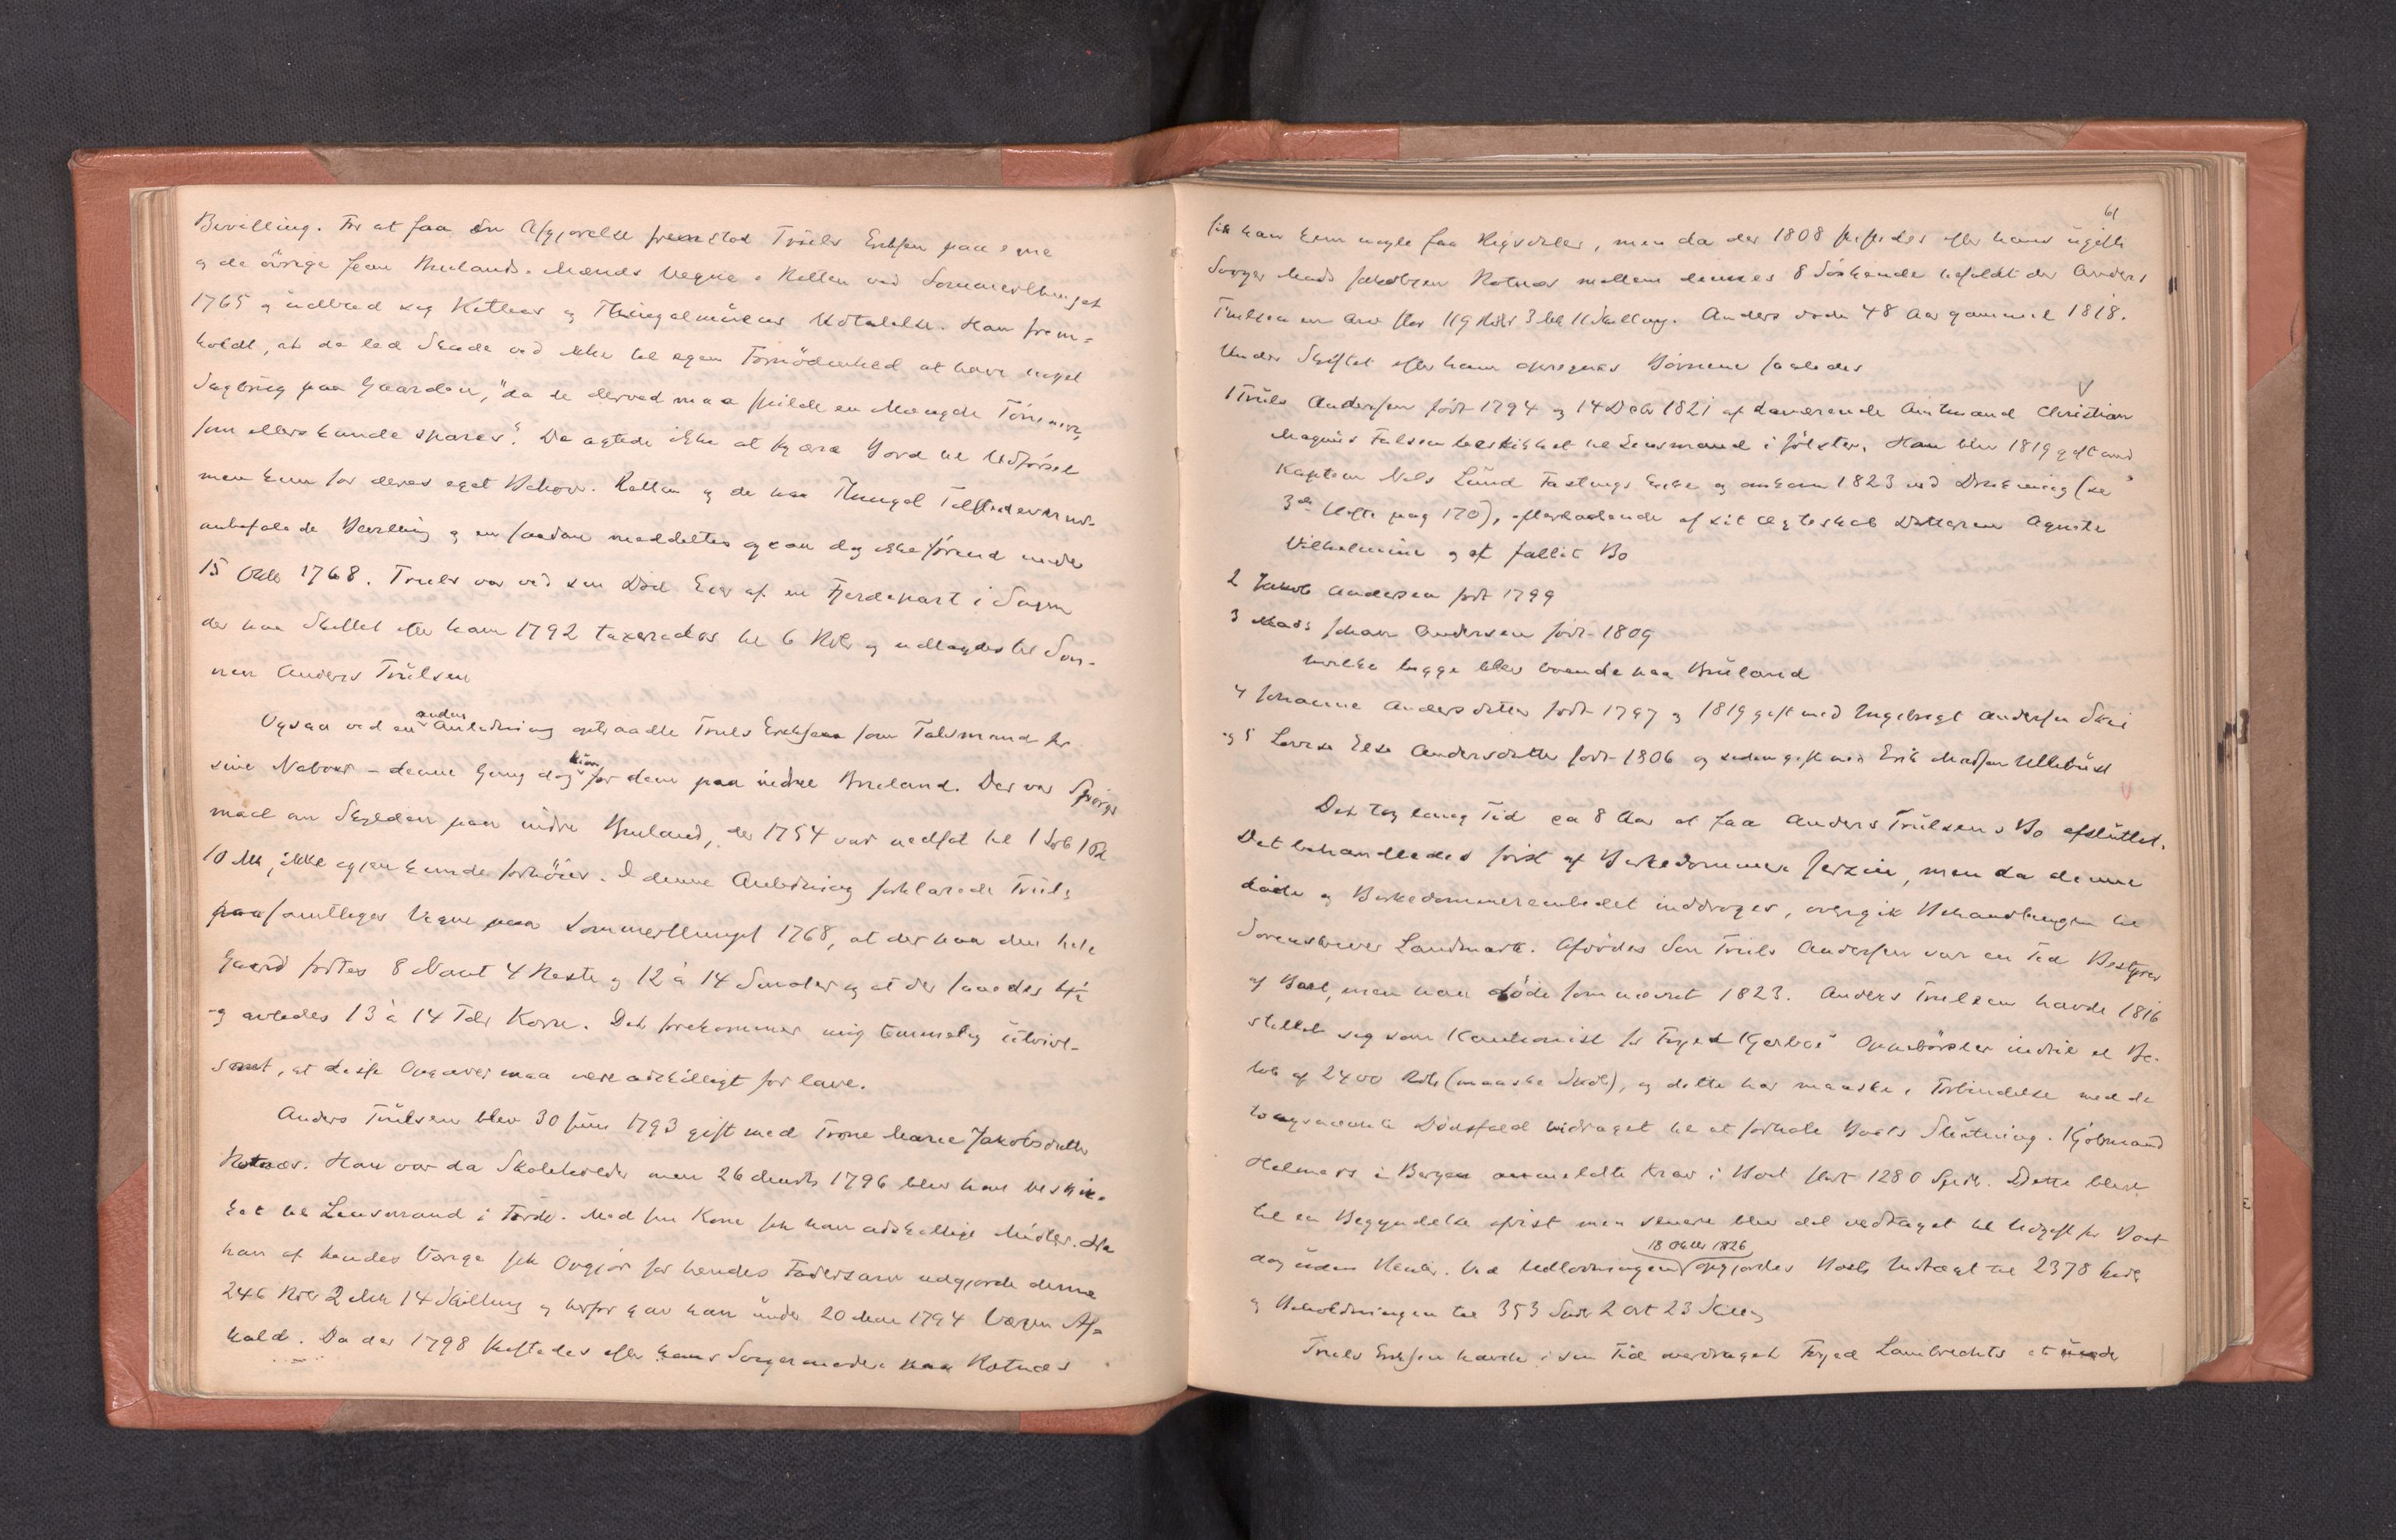 Bevilling. For at faa en Afgjørelse fremstod Truels Eriksen paa egne
og de øvrige fem Bruland-Mænds Vegne i Retten ved Sommerthinget
1765 og udbad sig Rettens og Thingalmuens Udtalelse. Han frem-
holdt, at de led Skade ved ikke til egen Fornødenhed at have noget
Sagbrug paa Gaarden, "da de derved maa spilde en Mængde Tømmer,
som ellers kunde spares". De agtede ikke at skjære Bord til Udførsel
men kun for deres eget Behov. Retten og de paa Thinget Tilstedeværen-
anbefalede Bevilling og en saadan meddeltes ogsaa dog ikke førend under
15 Oktb 1768. Truels var ved sin Død Eier af en Fjerdepart i Sagen
der paa Skiftet efter ham 1792 taxeredes til 6 Rdlr og udlagdes til Søn-
nen Anders Trulsen
Ogsaa ved en anden Anledning optraadte Truls Eriksen som Talsmand for
sine Naboer - denne Gang dog kun for dem paa indre Bruland. Der var Spørgs
maal om Skylden paa indre Bruland, der 1754 var nedsat til 1 Løb 1 Pd
10 Mk, ikke igjen kunde forhøies. I denne Anledning forklarede Truls
paa samtliges Vegne paa Sommerthinget 1768, at der paa den hele
Gaard fødtes 8 Naut 4 Heste og 12 à 14 Smaler og at der saaedes 4½
og avledes 13 à 14 Tdr Korn. Det forekommer mig temmelig utvivl-
somt, at disse Opgaver maa være adskilligt for lave.
Anders Trulsen blev 30 Juni 1793 gift med Trone Marie Jakobsdatter
Hotnæs. Han var da Skoleholder men 26 1796 blev han beskik-
ket til Lensmand i Førde. Med sin Kone fik han adskillige Midler. Da
han af hendes Værge fik Opgjør for hendes Fædrearv udgjorde denne
246 Rdlr 2 Mk 14 Skilling og herfor gav han under 20 Mai 1794 Værgen Af-
kald. Da der 1798 skiftedes efter hans Svigermoder paa Hotnæs
61
fik han kun nogle faa Rigsdaler, men da der 1808 skiftedes efter hans ugifte
Svoger Mads Jakobsen Hotnæs mellem dennes 8 Søskende tilfaldt der Anders
Trulsen en Arv stor 119 Rdlr 3 Mk 11 Skilling. Anders døde 48 Aar gammel 1818.
Under Skiftet efter ham opregnes Børnene saaledes
1 Truls Andersen født 1794 og 14 Decbr 1821 af daværende Amtmand Christian
Magnus Falsen beskikket til Lensmand i Jølster. Han blev 1819 gift med
Kaptein Nels Lund Fastings Enke og omkom 1823 ved Drukning (se
3de Hefte pag 170), efterladende af sit Ægteskab Datteren Agnete
Vilhelmine og et fallit Bo
2 Jakob Andersen født 1799
3 Mads Johan Andersen født 1809
hvilke begge blev boende paa Bruland
4 Johanne Andersdatter født 1797 og 1819 gift med Ingebrigt Andersen Skei
og 5 Lovise Else Andersdatter født 1806 og siden gift med Erik Madsen Ullebust
Det tog lang Tid ca 8 Aar at faa Anders Trulsens Bo afsluttet.
Det behandledes først af Birkedommer Jerzin, men da denne
døde og Birkedommerembedet inddroges, overgik Behandlingen til
Sorenskriver Landmark. Afdødes Søn Truls Andersen var en Tid Bestyrer
af Boet, men han døde som nævnt 1823. Anders Trulsen havde 1816
stillet sig som Kautionist for Foged Kjerbøe Oppebørsler indtil et Be-
løb af 2400 Rdlr (maaske Spdlr), og dette har maaske i Forbindelse med de
tvangsavante Dødsfald bidraget til at forhale Boets Slutning. Kjøbmand
Helmers i Bergen anmeldte Krav i Boet stort 1280 Spdlr. Dette blev
til en Begyndelse afvist men senere blev det vedtaget til Udgift for Boet
dog uden Renter. Ved Udlodningen 18 Oktbr 1826 opgjordes Boets Indtægt til 2378 Spdlr
og Beholdningen til 353 Spdlr 2 Ort 23 Skilling
Truls Eriksen havde i sin Tid overdraget Foged Lambrechts et under